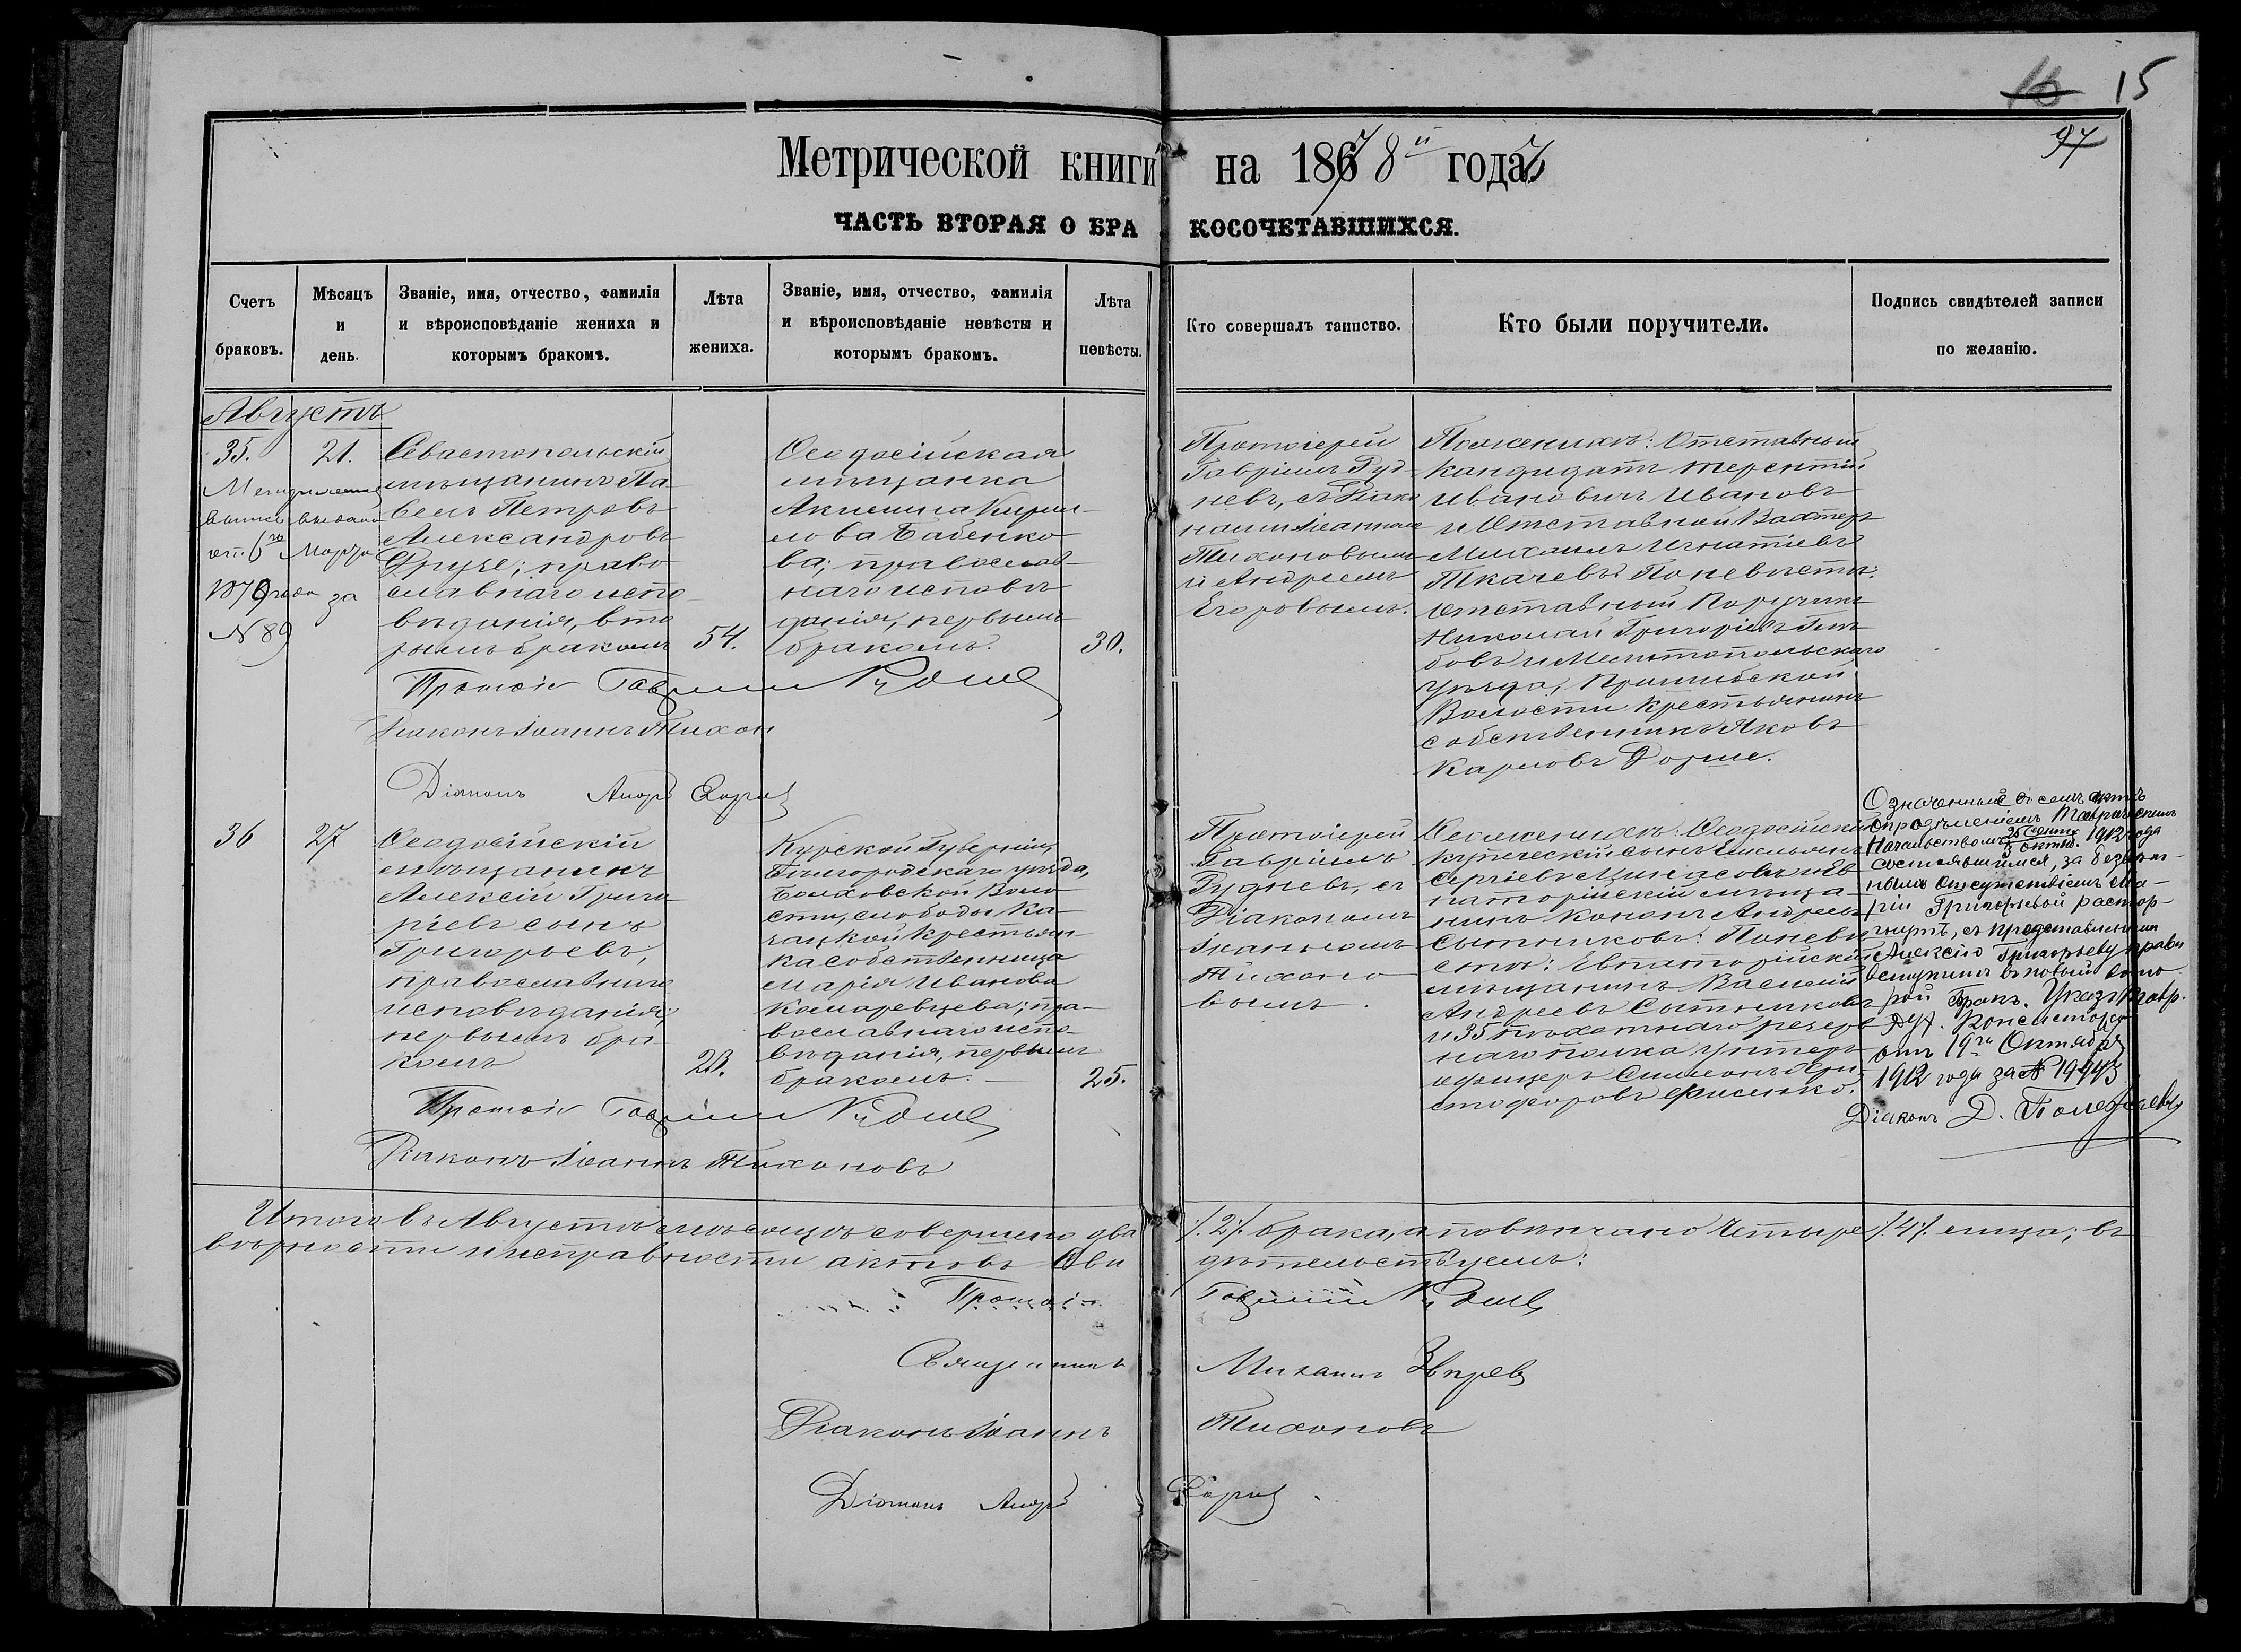 16 15
97
Метрической книги на 1878й годъ
ЧАСТЬ ВТОРАЯ О БРАКОСОЧЕТАВШИХСЯ.
Счетъ
браковъ.
Мѣсяцъ
и
день.
Званіе, имя, отчество, фамилія
и вѣроисповѣданіе жениха и
которымъ бракомъ.
Лѣта
жениха.
Званіе, имя, отчество, фамилія
и вѣроисповѣданіе невѣсты и
которымъ бракомъ.
Лѣта
невѣсты.
Кто совершалъ таинство.
Кто были поручители.
Подпись свидѣтелей записи
по желанію.
Августъ
35.
21.
выпись выдана
отъ 6го Марта
1879 года за
№ 89
Севастопольскій
мѣщанинъ Па-
велъ Петровъ
Александровъ
Друзе; право
славнаго испо
вѣданія, вто
рымъ бракомъ
54.
Ѳеодосійская
мѣщанка
Акилина Кирил-
лова Бабенко
ва; православ-
наго исповѣ
данія, первымъ
бракомъ.
30.
Протоіерей
Гавріилъ Руд-
невъ, съ Діако
нами Іоанномъ
Тихоновымъ
и Андреемъ
Егоровымъ.
По женихѣ: Отставный
Кандидатъ Терентій
Ивановичъ Ивановъ
и Отставной Вахтеръ
Михаилъ Игнатіевъ
Ткачевъ: По невѣстѣ:
отставный Поручикъ
Николай Григоріевъ
бовъ и Мелитопольскаго
уѣзда, Пришибской
Волости Крестьянинъ
собственникъ Яковъ
Карловъ
Протоіе Гавріилъ Рудне
Діаконъ Іоаннъ Тихон
Діаконъ Андр Егоров
36
27
Ѳеодосійскій
мѣщанинъ
Алексій Григо
ріевъ сынъ
Григорьевъ,
православнаго
исповѣданія,
первымъ бра-
комъ
Курской Губерніи,
Бѣлгородскаго уѣзда,
Болховской Воло
сти, слободы Ка-
зацкой Крестьян-
ка собственница
Марія Иванова
Комаревцева; пра-
вославнаго испо
вѣданія, первымъ
бракомъ.
25.
Протоіерей
Гавріилъ
Рудневъ, съ
Діакономъ
Іоанномъ
Тихоно
вымъ.
По женихѣ: Ѳеодосійскій
купеческій сынъ Емельянъ
Сергіевъ Ев
паторійскій мѣща
нинъ Кононъ Андреевъ
Сытниковъ: По невѣ
стѣ: Евпаторійскій
мѣщанинъ Василій
Андреевъ Сытниковъ
и 35 пѣхотнаго резерв
наго полка унтеръ
офицеръ Симеонъ Хри
стофоровъ Фисенко.
Означенный въ семъ актѣ
опредѣленіемъ Таврическимъ
Начальствомъ 26 Сент./3 октяб. 1912 года
состоявшимся, за безвѣст-
нымъ отсутствіемъ Ма-
ріи Григорьевой растор-
гнутъ, съ предоставленіемъ
Алексію Григорьеву права
вступить въ новый вто-
рой бракъ. Указъ Тавр.
Дух. Консисторіи
отъ 19го Октября
1912 года за №
Діаконъ Д.
Протоіе Гавріилъ Рудне
Діаконъ Іоаннъ Тихоновъ
Итого въ Августѣ мѣсяцѣ совершено два /.2./. брака, а повѣнчано четыре /.4./. лица; въ
вѣрности и исправности актовъ сви дѣтельствуемъ:
Протоіе Гавріилъ Рудне
Священникъ Михаилъ
Діаконъ Іоаннъ Тихоновъ
Діаконъ Андр Егоров